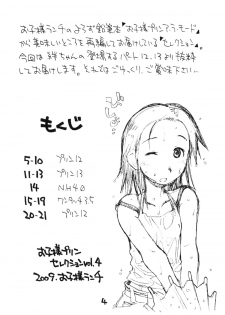 お子様ランチのよろず鉛筆本『お子様プリンアラ・モード』
から美味しいところを再編してお届けしている『セレクション』
今回は絆ちゃんの登場するパート12、13より抜粋
してお届けします。それではごゆっくり、ご賞味下さい…
もくじ
5-10 プリン12
11-13 プリン13
14 NH40
15-19 ワンダ435
20-21 プリン12
お子様プリン
セレクションvol.4
2009.お子様ランチ
4